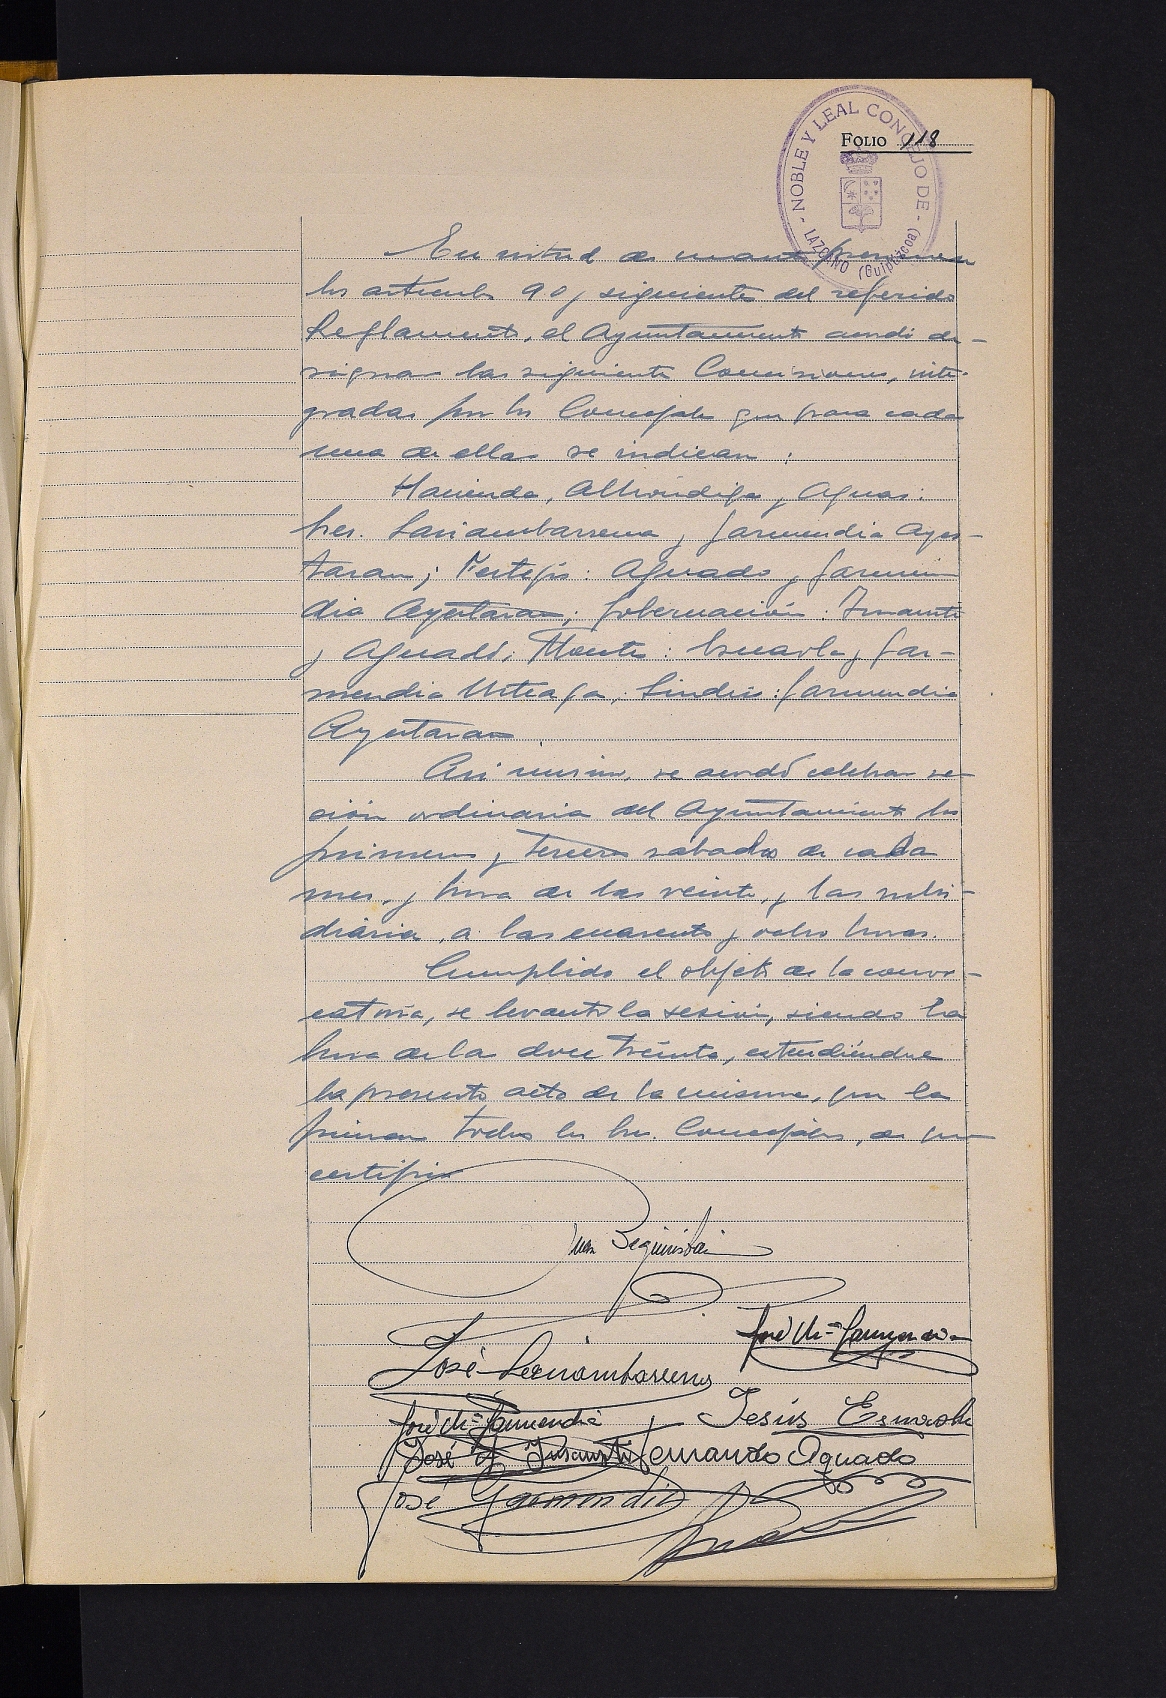 NOBLE Y LEAL CONCEJO DE
LAZCANO (Guipúzcoa)
FOLIO 118
En virtud de cuanto previenen
los articulos 90 y siguientes del referido
Reglamento, el Ayuntamiento acordó de-
signar las siguientes Comisiones, inte-
gradas por los Concejales que para cada
una de ellas se indican:
Hacienda, Alhóndiga y Aguas:
Sres. Garmendia Ayes-
taran; Festejos: Aguado y Garmen
dia Ayestaran; Gobernación: Insausti
y Aguado; Montes: Esnaola y Gar-
mendia Urteaga; Sindico: Garmendia
Ayestaran.
Asi mismo, se acordó celebrar se-
sión ordinaria del Ayuntamiento los
primeros y terceros sabados de cada
mes, y hora de las veinte, y las subsi-
diaria, a las cuarenta y ocho horas.
Cumplido el objeto de la convo-
catoria, se levantó la sesión, siendo la
hora de la doce treinta, extendiéndose
la presente acta de la misma, que la
firman todos los Sres. Concejales, de que
certifico
Juan Beguiristain
José Mª Garmendia
José
José Mª Garmendia
Jesús Esnaola
José Insausti
Fernando Aguado
José Garmendia